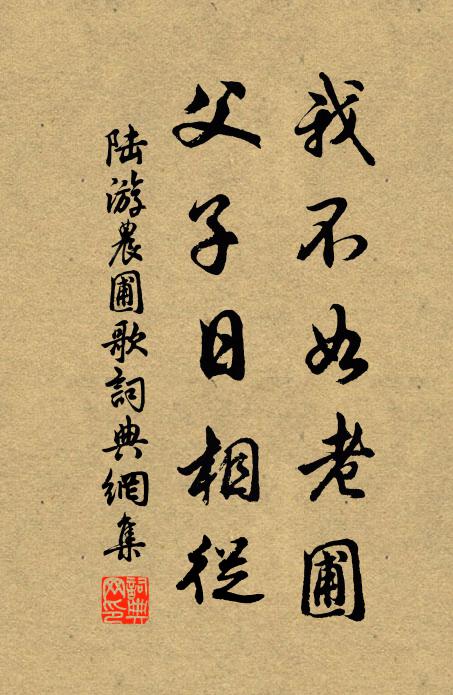 我不如老圃
父子日相從
陸游農圃歌詞典網集
詞典網印